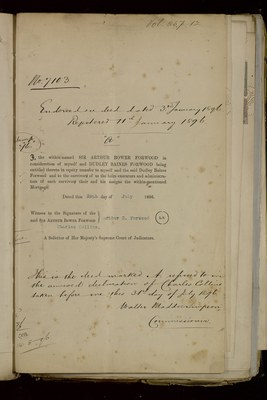 Vol. 35 p. 13
No. 7103
Endorsed on deed dated 3rd January 1896
Registered 11th January 1896
"A"
I, the within-named SIR ARTHUR BOWEN FORWOOD in
consideration of myself and DUDLEY BAINES FORWOOD being
entitled thereto in equity transfer to myself and the said Dudley Baines
Forwood and to the survivors of us the
of such survivor his and his assigns the within-mentioned
Mortgage.
Dated this day of July 1896.
Witness to the Signature of the
said Sir Arthur Bowen Forwood
Arthur B. Forwood
LS
Charles Collins,
A Solicitor of Her Majesty's Supreme Court of Judicature.
This is the deed marked A referred to in
the annexed declaration of Charles Collins
taken before me this 31st day of July 1896
Commissioner